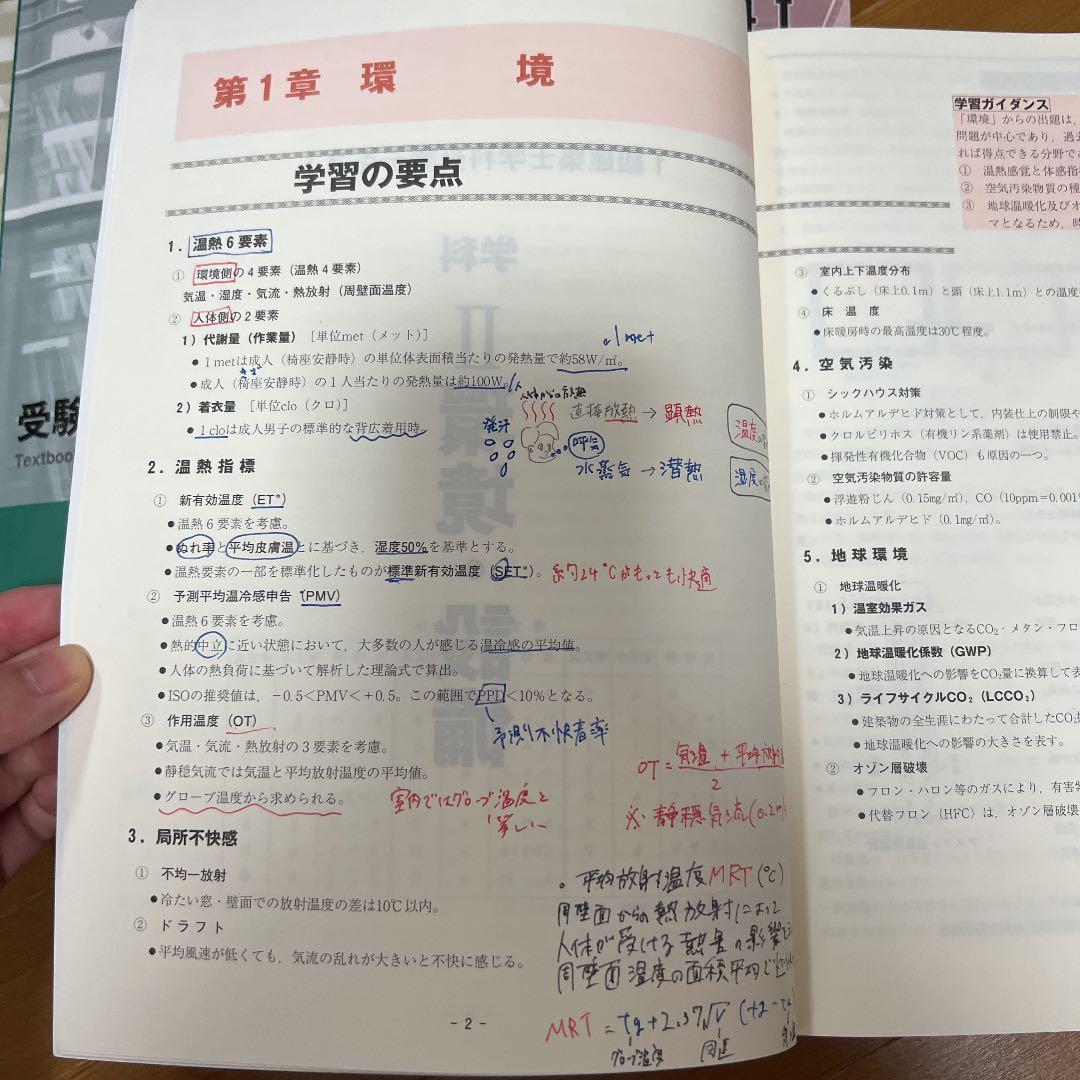 第1章 環 境
学習の要点
1. 温熱6要素
① 環境側の4要素（温熱4要素）
気温・湿度・気流・熱放射（周壁面温度）
② 人体側の2要素
1）代謝量（作業量） ［単位met（メット）］
1met
●1metは成人（椅座安静時）の単位体表面積当たりの発熱量で約58W/㎡。
●成人（椅座安静時）の1人当たりの発熱量は約100W。
2）着衣量 ［単位clo（クロ）］
●1cloは成人男子の標準的な背広着用時。
直接放熱→顕熱
発汗
呼気
水蒸気→潜熱
温度
湿度
2. 温熱指標
① 新有効温度（ET*）
●温熱6要素を考慮。
●ぬれ率と平均皮膚温とに基づき，湿度50%を基準とする。
●温熱要素の一部を標準化したものが標準新有効温度（SET*）。
約24°Cがもっとも快適
② 予測平均温冷感申告（PMV）
●温熱6要素を考慮。
●熱的中立に近い状態において，大多数の人が感じる温冷感の平均値。
●人体の熱負荷に基づいて解析した理論式で算出。
●ISOの推奨値は，−0.5＜PMV＜＋0.5。この範囲でPPD＜10%となる。
予測不快者率
③ 作用温度（OT）
●気温・気流・熱放射の3要素を考慮。
●静穏気流では気温と平均放射温度の平均値。
●グローブ温度から求められる。
室内ではグローブ温度と
等しい
OT＝気温＋平均放射
2
※静穏気流(0.2m
3. 局所不快感
① 不均一放射
●冷たい窓・壁面での放射温度の差は10℃以内。
② ドラフト
●平均風速が低くても，気流の乱れが大きいと不快に感じる。
・平均放射温度MRT(℃)
周壁面からの熱放射によって
人体が受ける熱量の影響を
周壁面温度の面積平均で
MRT＝tg+2.37√V(tg−
グローブ温度
- 2 -
学習ガイダンス
「環境」からの出題は，
問題が中心であり，過去
れば得点できる分野で
① 温熱感覚と体感指
② 空気汚染物質の種
③ 地球温暖化及びオ
マとなるため，時
③ 室内上下温度分布
●くるぶし（床上0.1m）と頭（床上1.1m）との温度
④ 床温度
●床暖房時の最高温度は30℃程度。
4. 空気汚染
① シックハウス対策
●ホルムアルデヒド対策として，内装仕上の制限や
●クロルピリホス（有機リン系薬剤）は使用禁止。
●揮発性有機化合物（VOC）も原因の一つ。
② 空気汚染物質の許容量
●浮遊粉じん（0.15mg/㎥），CO（10ppm＝0.001%
●ホルムアルデヒド（0.1mg/㎥）。
5. 地球環境
① 地球温暖化
1）温室効果ガス
●気温上昇の原因となるCO₂・メタン・フロ
2）地球温暖化係数（GWP）
●地球温暖化への影響をCO₂量に換算して表
3）ライフサイクルCO₂（LCCO₂）
●建築物の全生涯にわたって合計したCO₂
●地球温暖化への影響の大きさを表す。
② オゾン層破壊
●フロン・ハロン等のガスにより，有害
●代替フロン（HFC）は，オゾン層破壊
受験
Textboo